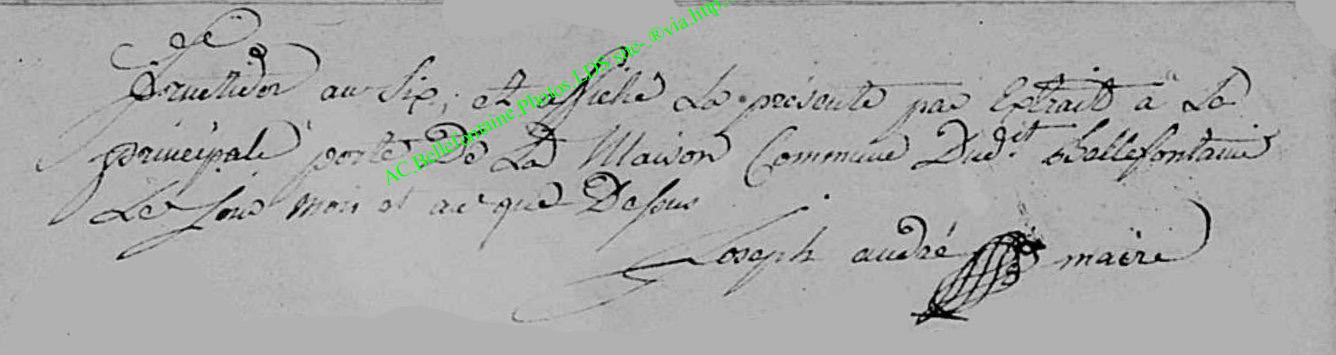 fructidor an six, et affiché La présente par Extrait à La
principale porte De La Maison Commune Dudit Bellefontaine
Le jour mois et an que Desous
Joseph andré maire
AC.Bellefontaine.Photos.LDS.site-.®via.http.